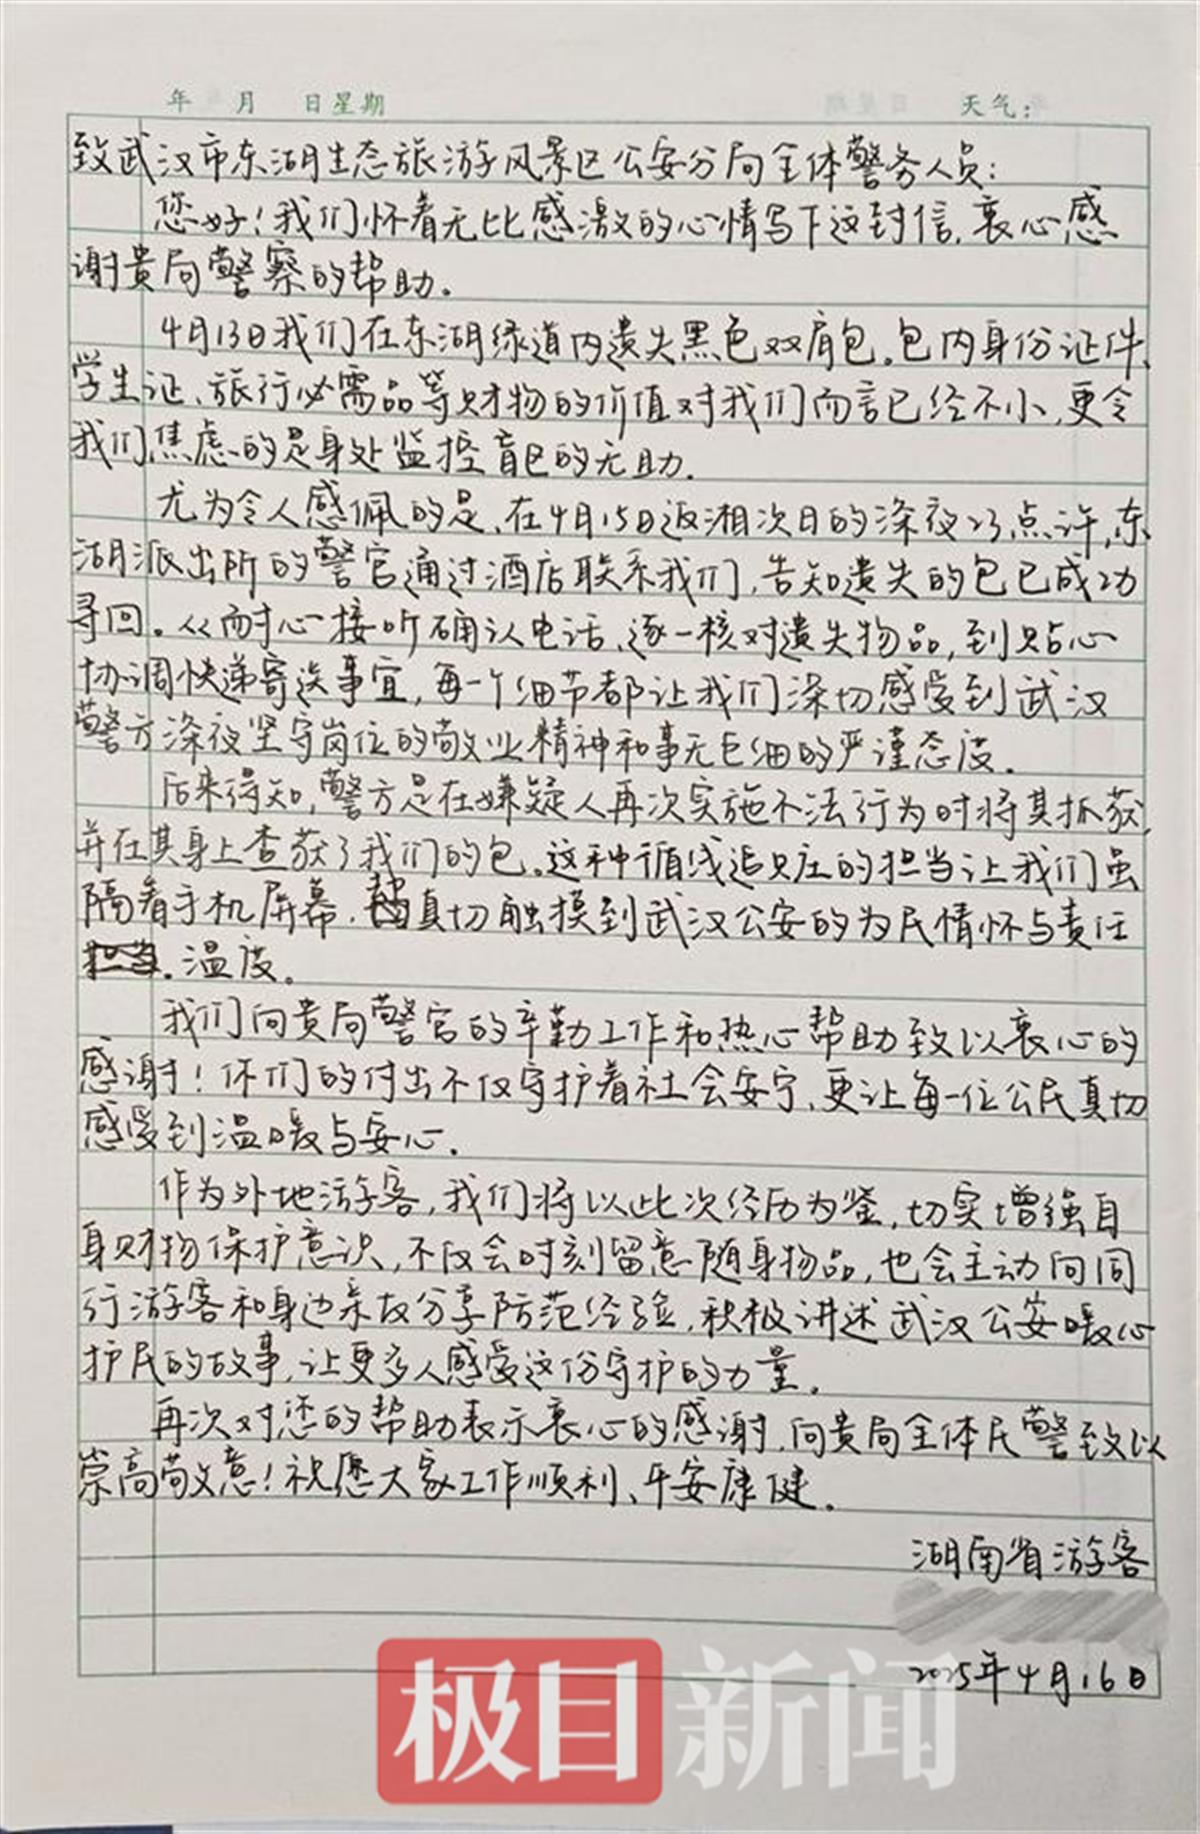 年 月 日 星期 天气:
致武汉市东湖生态旅游风景区公安分局全体警务人员:
您好!我们怀着无比感激的心情写下这封信,衷心感
谢贵局警察的帮助.
4月13日我们在东湖绿道内遗失黑色双肩包。包内身份证件、
学生证、旅行必需品等财物的价值对我们而言已经不小,更令
我们焦虑的是身处监控盲区的无助.
尤为令人感佩的是,在4月15日返湘次日的深夜23点许,东
湖派出所的警官通过酒店联系我们,告知遗失的包已成功
寻回。从耐心接听确认电话、逐一核对遗失物品,到贴心
协调快递寄送事宜,每一个细节都让我们深切感受到武汉
警方深夜坚守岗位的敬业精神和事无巨细的严谨态度.
后来得知,警方是在嫌疑人再次实施不法行为时将其抓获,
并在其身上查获了我们的包。这种循线追踪的担当让我们虽
隔着手机屏幕,真切触摸到武汉公安的为民情怀与责任
.温度。
我们向贵局警官的辛勤工作和热心帮助致以衷心的
感谢!你们的付出不仅守护着社会安宁,更让每一位公民真切
感受到温暖与安心.
作为外地游客,我们将以此次经历为鉴,切实增强自
身财物保护意识,不仅会时刻留意随身物品,也会主动向同
行游客和身边亲友分享防范经验,积极讲述武汉公安暖心
护民的故事,让更多人感受这份守护的力量.
再次对您的帮助表示衷心的感谢,向贵局全体民警致以
崇高敬意!祝愿大家工作顺利、平安康健.
湖南省游客
2025年4月16日
极目新闻